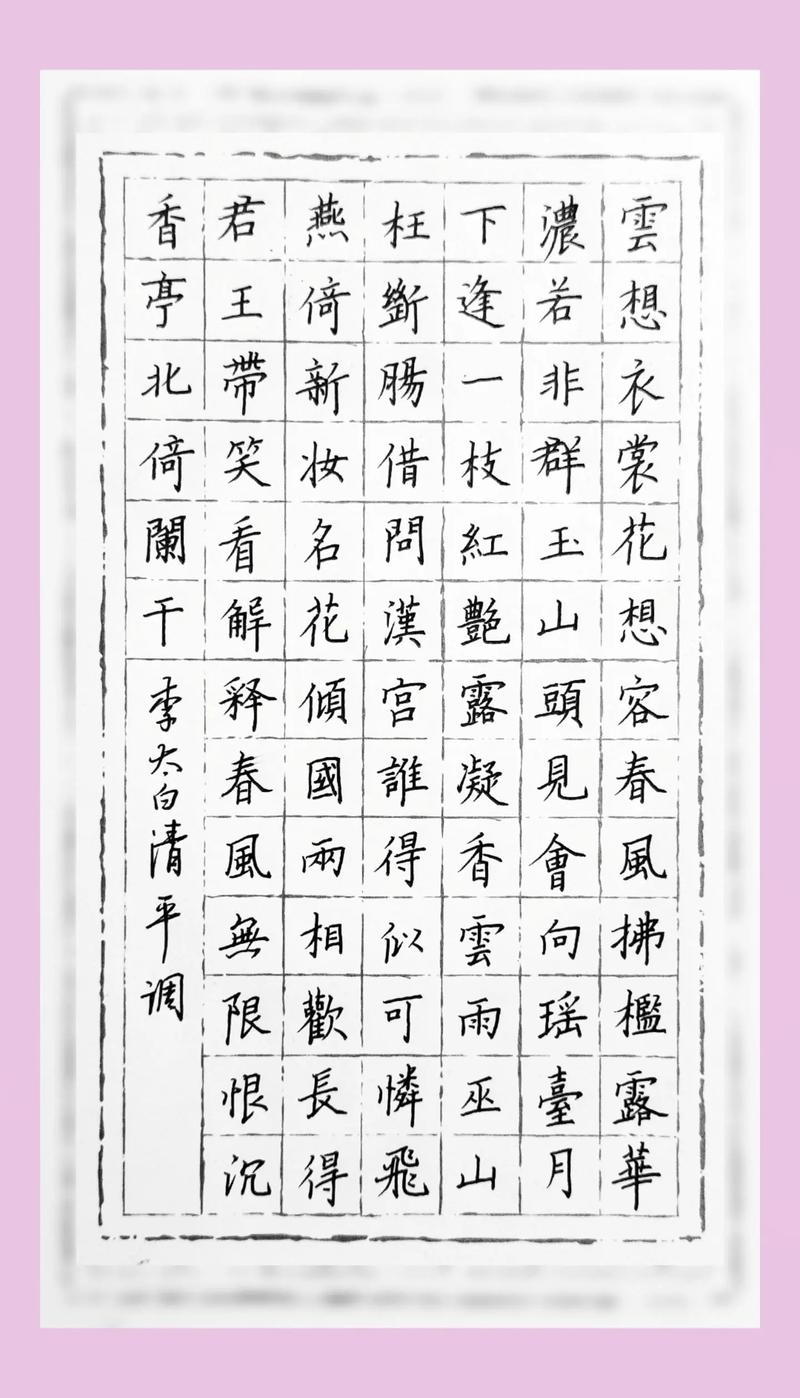 雲想衣裳花想容春風拂檻露華
濃若非群玉山頭見會向瑶臺月
下逢一枝紅艷露凝香雲雨巫山
枉斷腸借問漢宮誰得似可憐飛
燕倚新妝名花傾國兩相歡長得
君王帶笑看解釋春風無限恨沉
香亭北倚闌干
李太白清平调